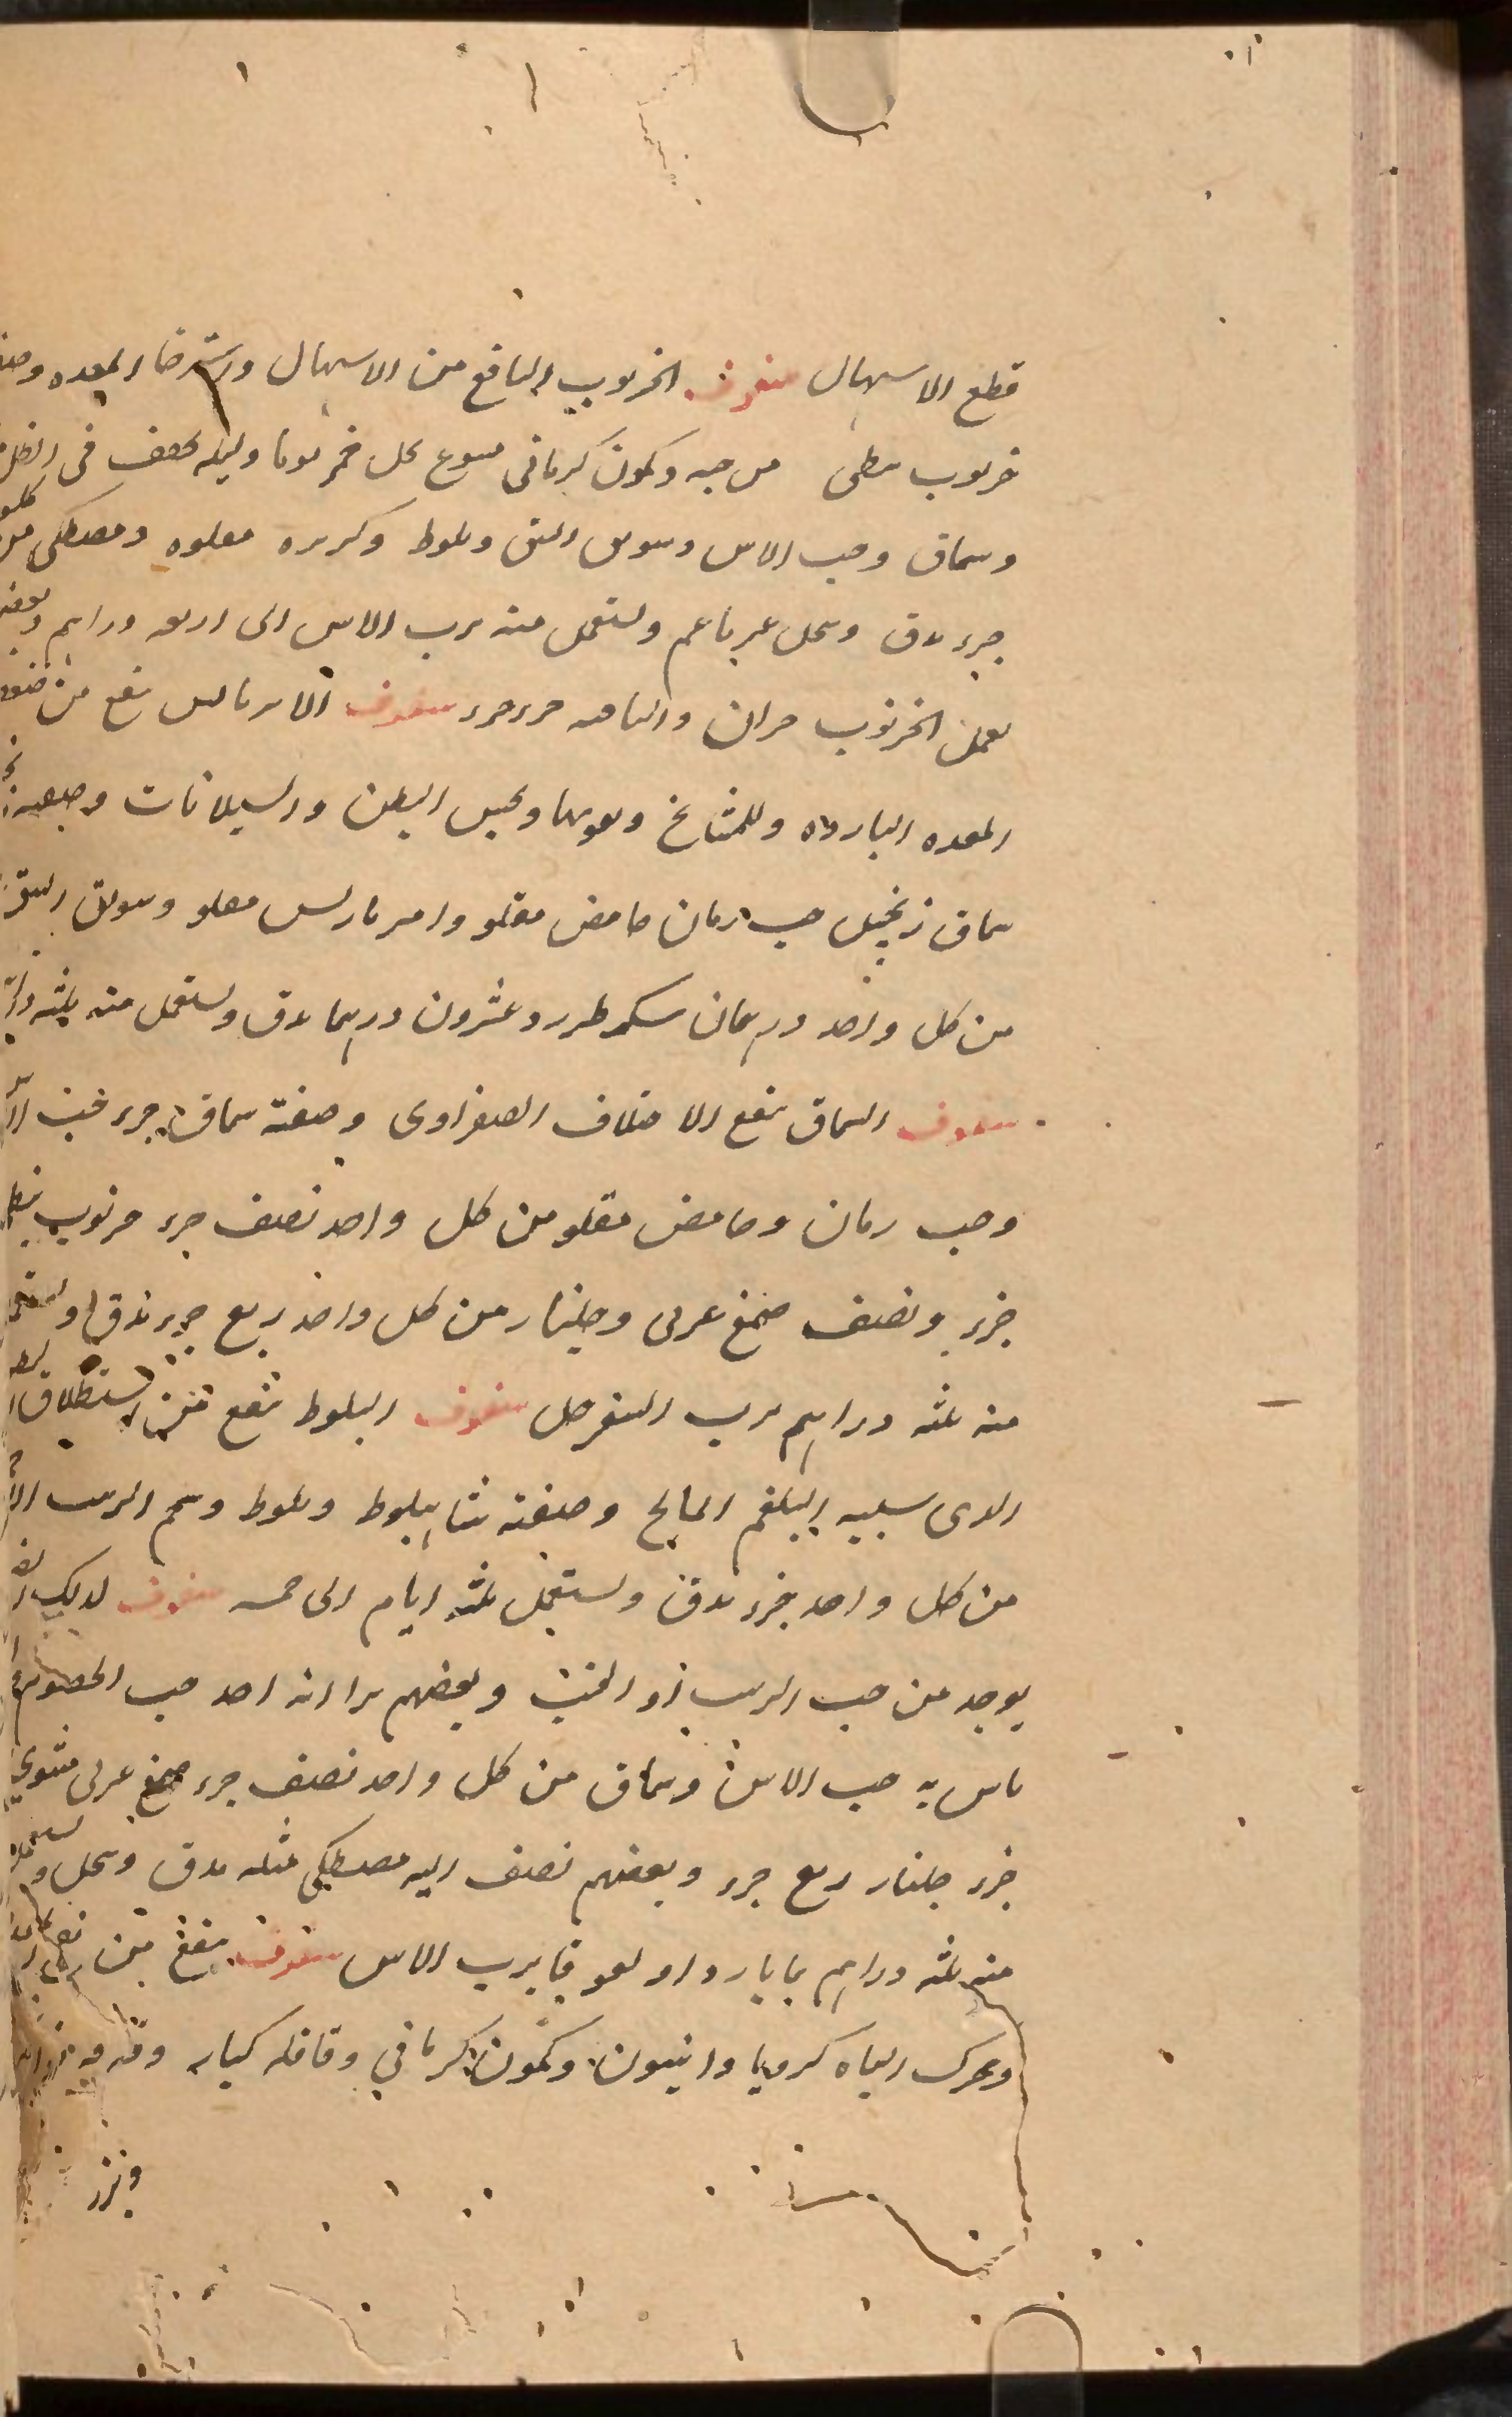 قطع الاسهال سفوف الخرنوب النافع من الاسهال واسترخا المعده وصفته
خرنوب نبطى من حبه وكمون كرمانى منقوع بخل خمر يوما وليله مجفف فى الظل
وسماق وحب الاس وسويق النبق وبلوط وكزبره مقلوه ومصطكى من كل
جزء يدق وينخل غير ناعم ويستعمل منه برب الاس الى اربعه دراهم وبعضهم
يعمل الخرنوب جزان والباقيه جزء جزء سفوف الامبرباريس ينفع من ضعف
المعده البارده وللمشايخ ويقويها ويحبس البطن والسيلانات وصفته
سماق زنجبيل حب رمان حامض مقلو وامبرباريس مقلو وسويق النبق
من كل واحد درهمان سكر طبرزد عشرون درهما يدق ويستعمل منه ثلثه
سفوف السماق ينفع الاختلاف الصفراوى وصفته سماق جزء
وحب رمان وحامض مقلو من كل واحد نصف جزء خرنوب نبطى
جزء ونصف صمغ عربى وجلنار من كل واحد ربع جزء يدق ويستعمل
منه ثلثه دراهم برب السفرجل سفوف البلوط ينفع من استطلاق
الذى سببه البلغم المالح وصفته شاه بلوط وبلوط وعجم الزبيب
من كل واحد جزء يدق ويستعمل ثلثه ايام الى خمسه سفوف لذلك
يوخذ من حب الزبيب ذو الخبث وبعضهم يرا انه احد حب الحصرم
ياس به حب الاس وسماق من كل واحد نصف جزء صمغ عربى مشوى
جزء جلنار ربع جزء وبعضهم نصف اليه مصطكى مثله يدق وينخل ويستعمل
منه ثلثه دراهم بما بارد او لعوقا برب الاس سفوف ينفع من
ويحرك الباه كرويا وانيسون وكمون كرمانى وقاقله كبار وقرفه
وبزر